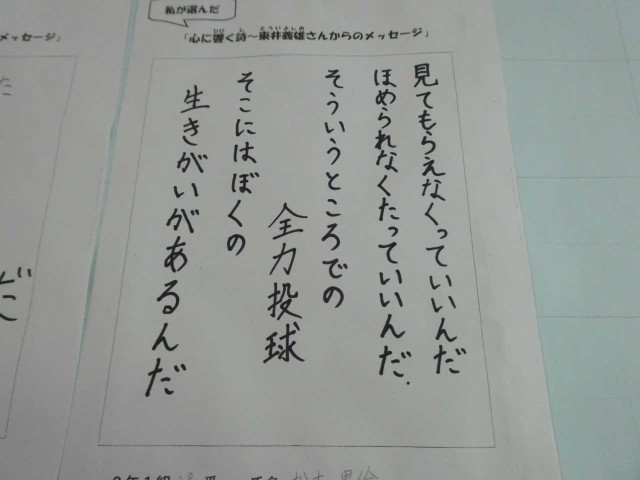 私が選んだ
「心に響く詩～東井義雄さんからのメッセージ」
見てもらえなくっていいんだ
ほめられなくたっていいんだ.
そういうところでの
全力投球
そこにはぼくの
生きがいがあるんだ
メッセージ」